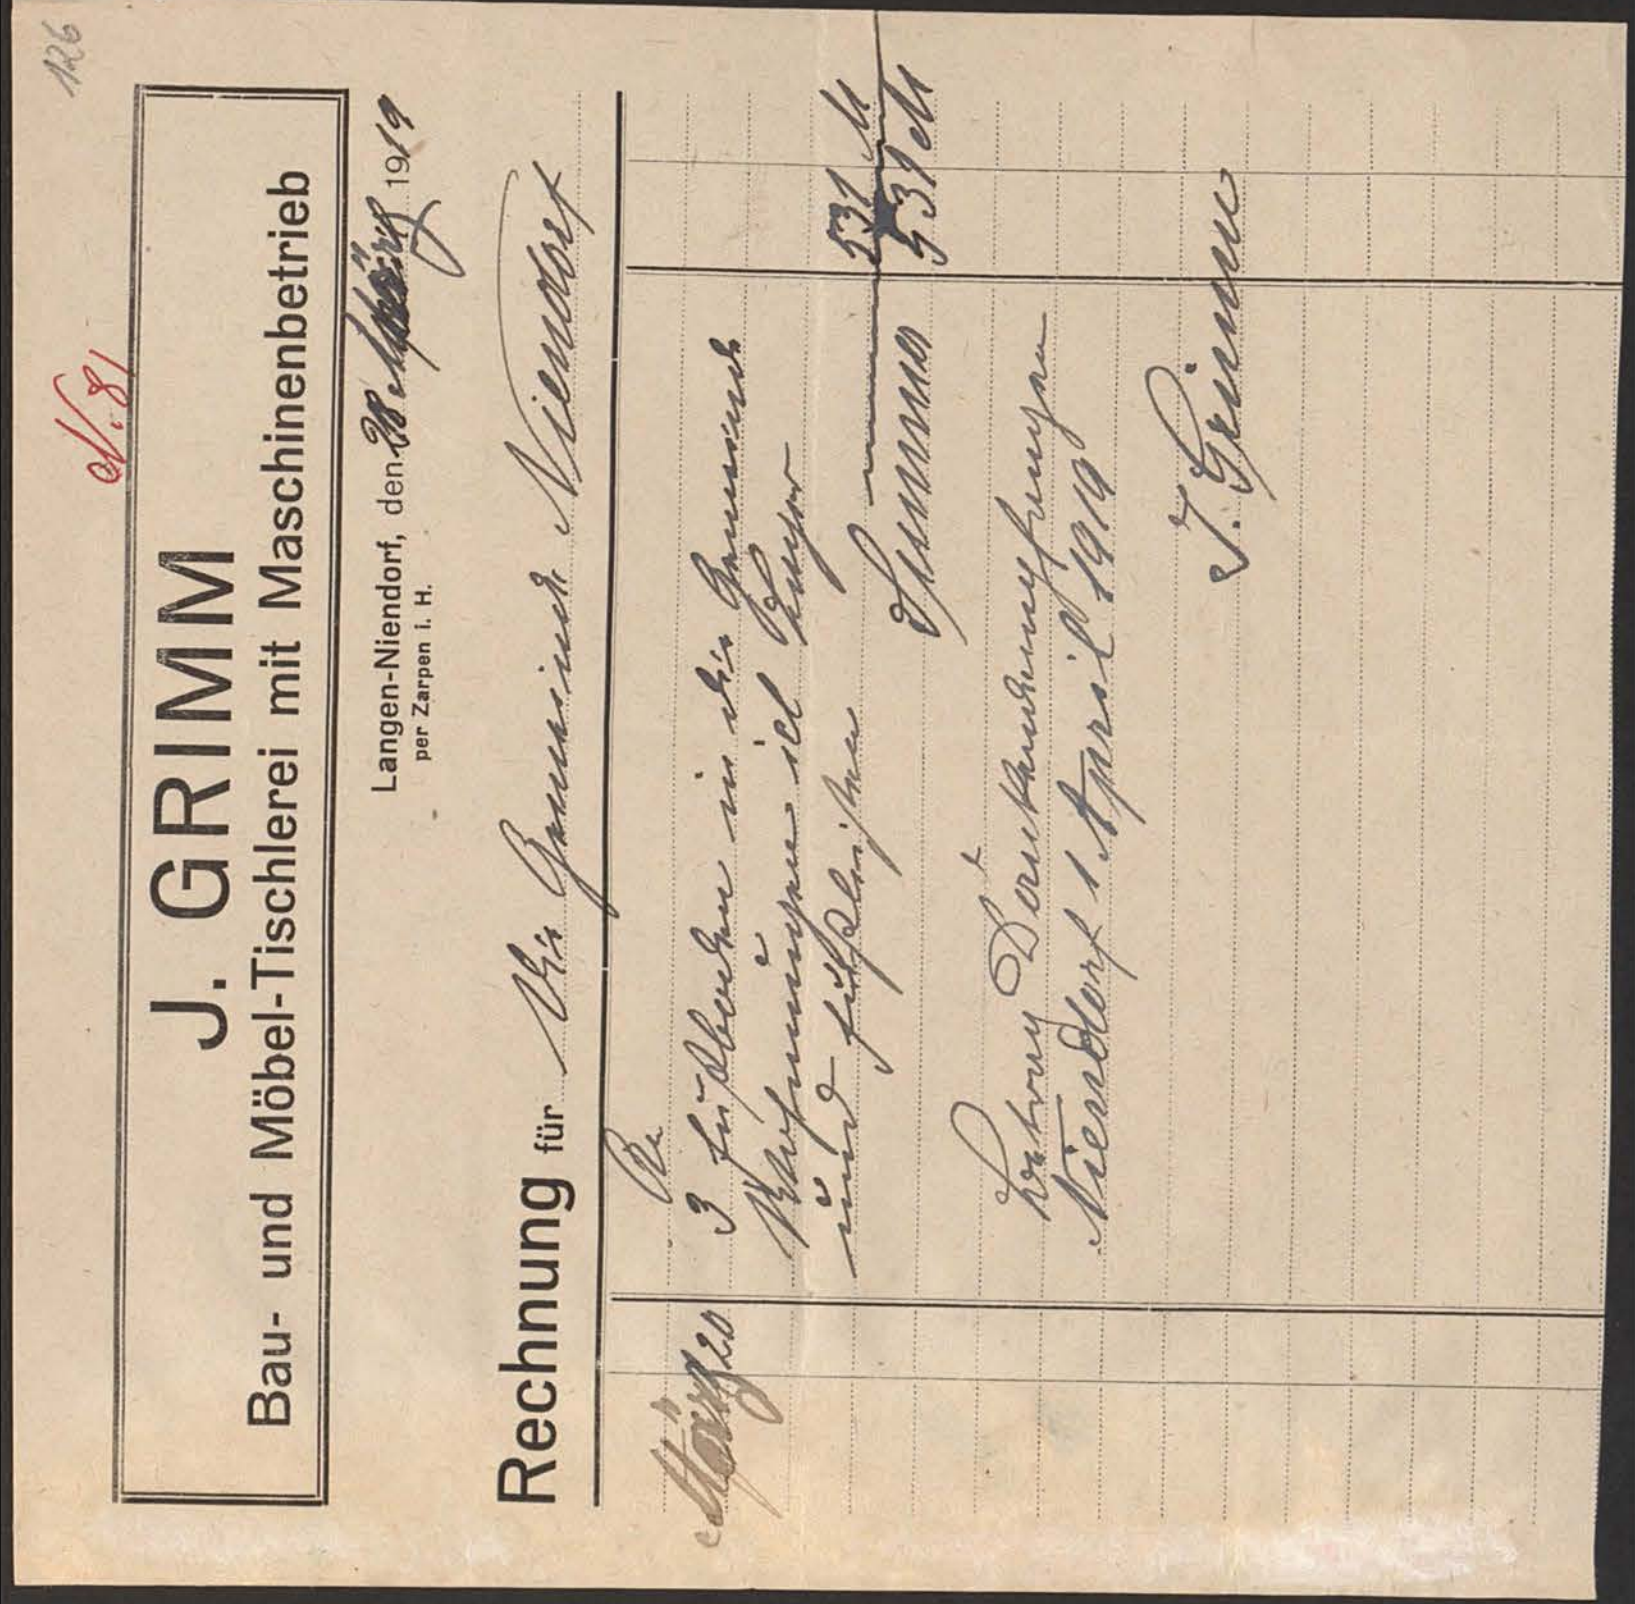 126
N. 81
J. GRIMM
Bau- und Möbel-Tischlerei mit Maschinenbetrieb
Langen-Niendorf, den 28 März 1919
per Zarpen i. H.
Rechnung für Die Gemeinde Niendorf
März 20
3 Fußboden in die Gemeinde
Wohnungen
und
531 M
Summa 531 M
Betrag Dankend empfangen
Niendorf 1 April 1919
J. Grimm